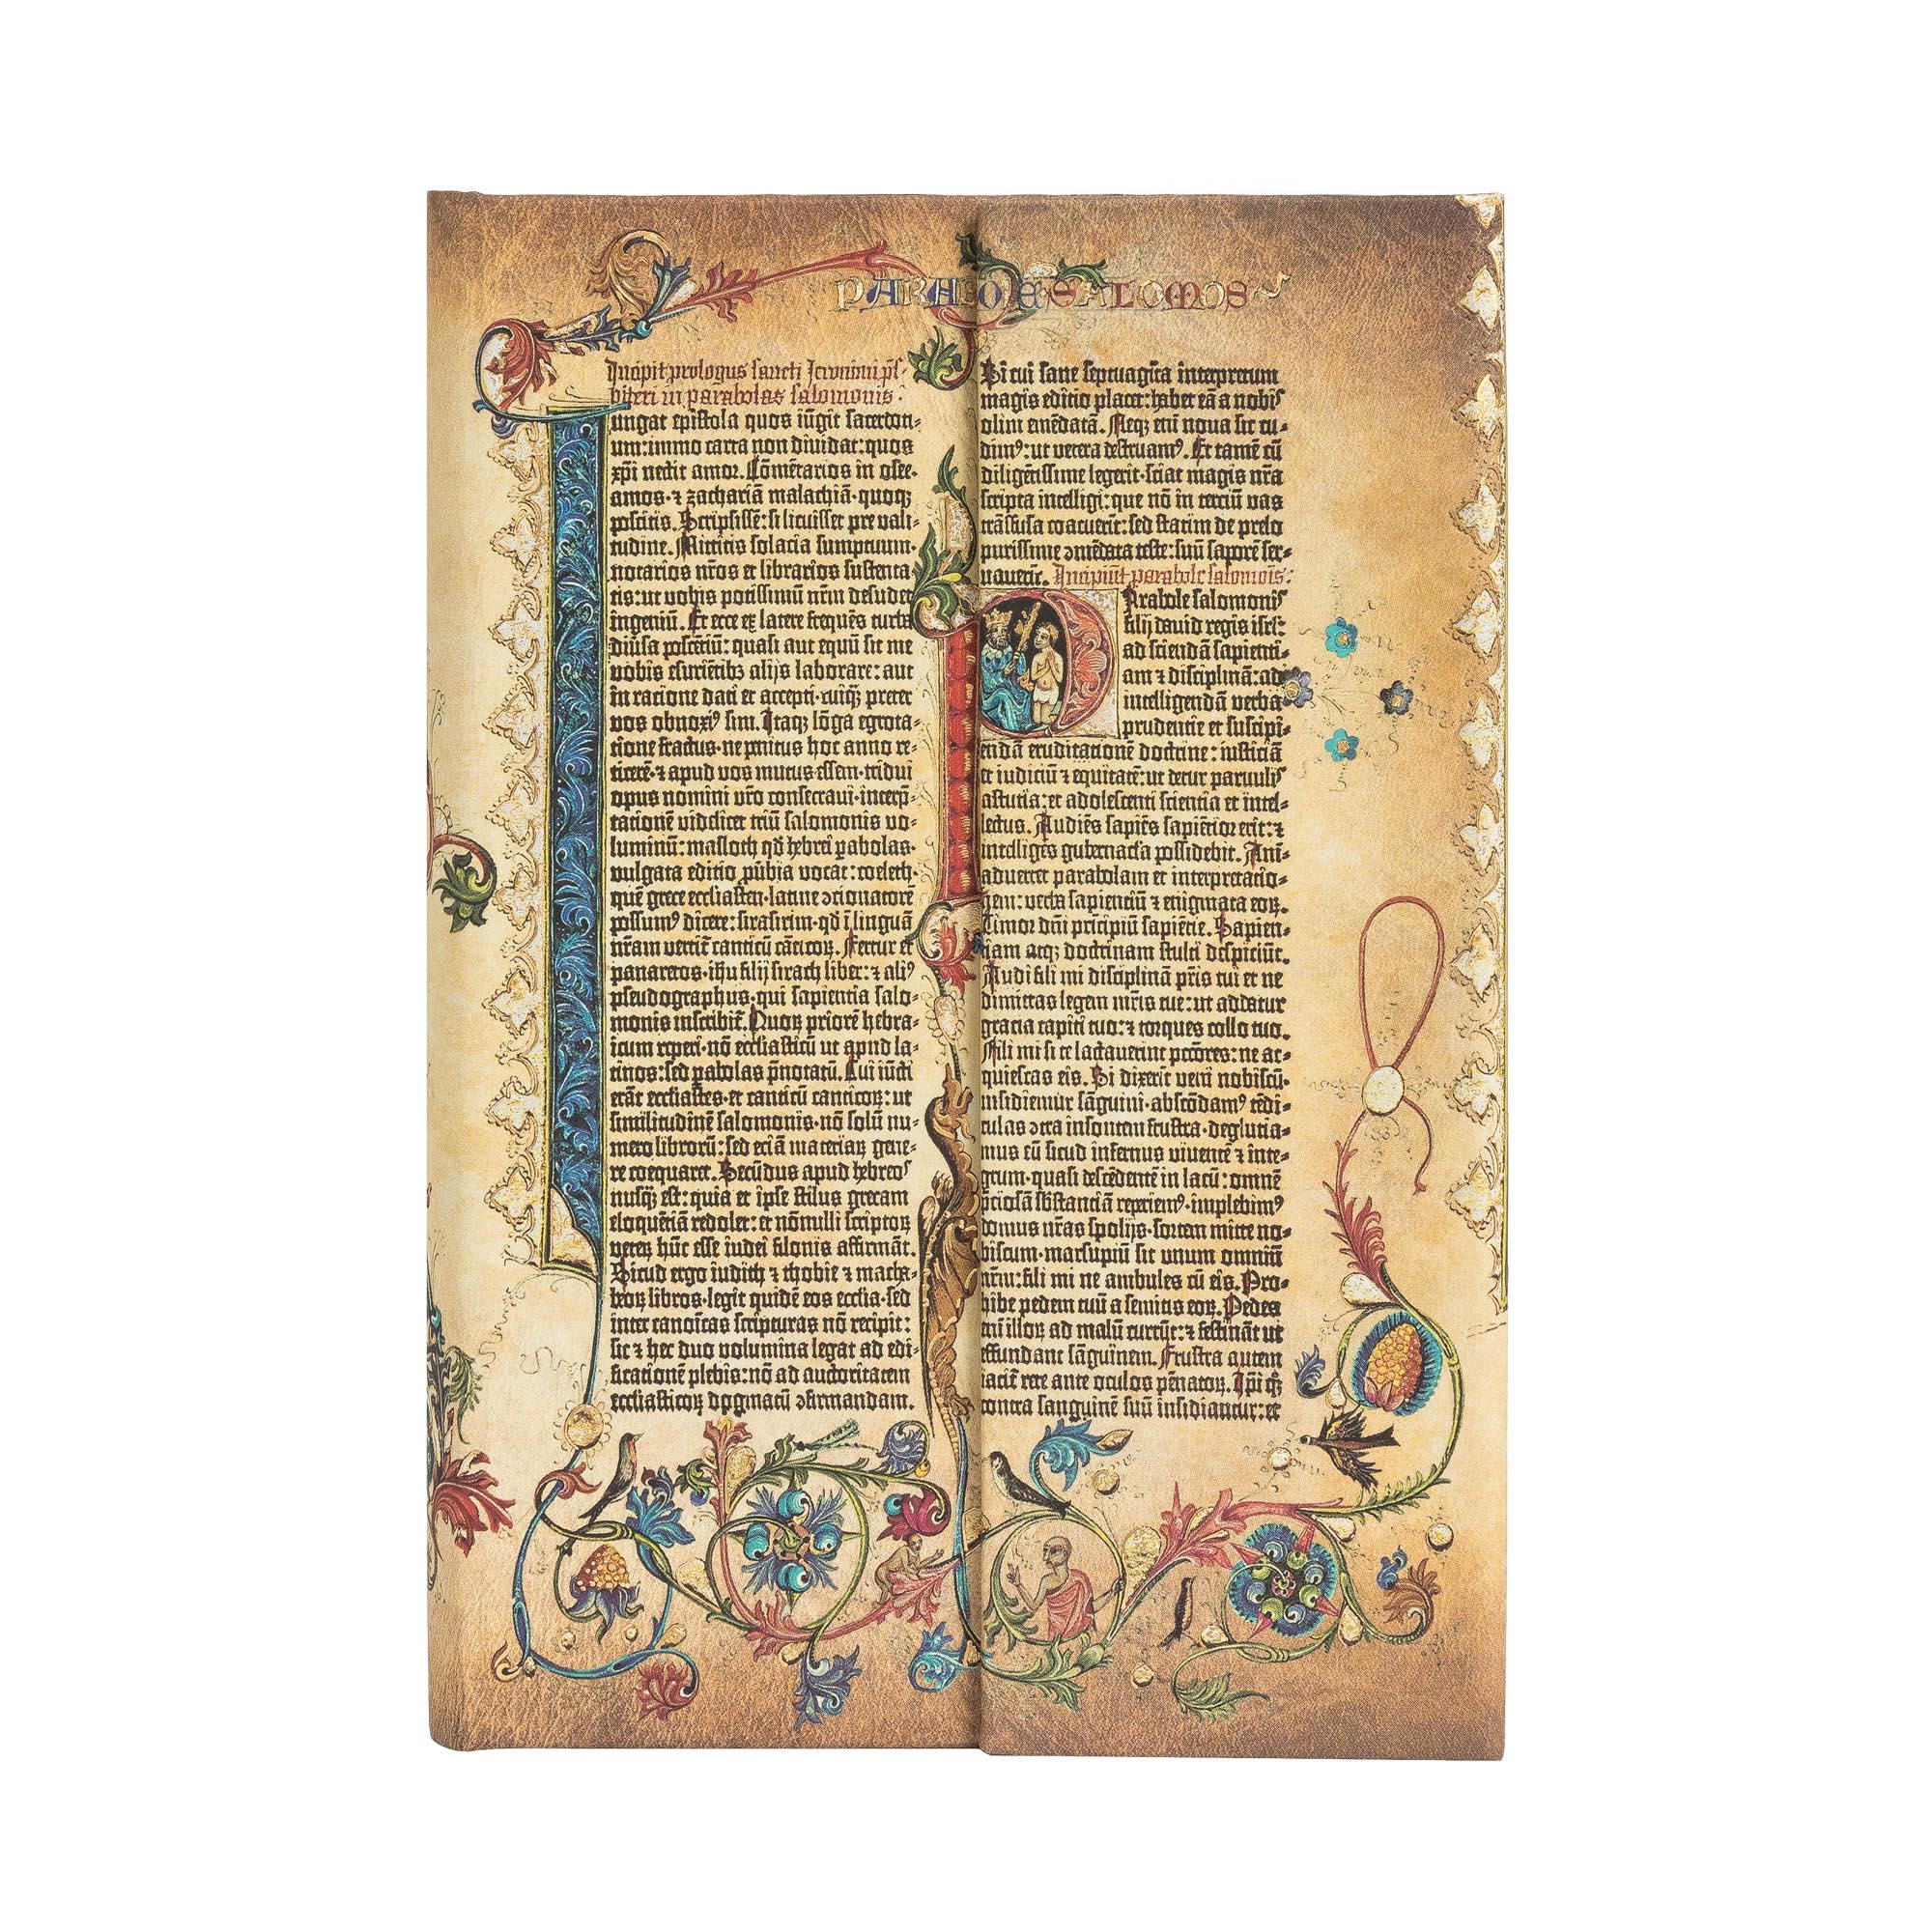 PARABOLE SALOMOIS
Incipit prologus sancti Jeronimi ps-
biteri in parabolas salomonis.
Iungat epistola quos iūgit sacerdoti-
um: immo carta non dividat: quos
xp̄i nectit amor. Cōmētarios in osee.
amos. ⁊ zachariā malachiā. quoqꝫ
poscitis. Scripsissē: si licuisset pre vali-
tudine. Mittitis solacia sumptuum.
notarios nr̄os et librarios sustenta-
tis: ut vobis potissimū nr̄m desudet
ingeniū. Et ecce ex latere frequēs turba
diūsa poscētiū: quasi aut equū sit me
vobis esuriētibꝫ alijs laborare: aut
in racione dati et accepti. cuiqꝫ preter
vos obnoxiꝰ sim. Itaqꝫ lōga egrota-
tione fractus. ne penitus hoc anno re-
ticerē. ⁊ apud vos mutus essem. tridui
opus nomini vr̄o consecravi. interp̄-
tationē videlicet triū salomonis vo-
luminū: masloth qd̄ hebrei ꝑabolas.
vulgata editio ꝓūbia vocat: coeleth.
quē grece ecclīasten. latine ↄcionatorē
possumꝰ dicere: sirasirim. qd̄ ī linguā
nr̄am vertit̄ canticū cāticoꝝ. Fertur et
panaretos. ihū filij sirach liber: ⁊ aliꝰ
pseudographus. qui sapientia salo-
monis inscribit̄. Quoꝝ priorē hebra-
icum reperi. nō ecclīasticū ut apud la-
tinos: sed ꝑabolas p̄notatū. Cui iūcti
erāt ecclīastes. et canticū canticoꝝ: ut
similitudinē salomonis. nō solū nu-
mero librorū: sed eciā materiaꝝ gene-
re coequaret. Secūdus apud hebreos
nusqꝫ est: quia et ipse stilus grecam
eloquētiā redolet: et nōnulli scriptoꝝ
veteꝝ hūc esse iudei filonis affirmāt.
Sicud ergo iudith ⁊ thobie ⁊ macha-
beoꝝ libros. legit quidē eos ecclīa. sed
inter canoīcas scripturas nō recipit:
sic ⁊ hec duo volumina legat ad edi-
ficationē plebis: nō ad auctoritatem
ecclīasticoꝝ dogmatū ↄfirmandam.
Si cui sane septuagīta interpretum
magis editio placet: habet eā a nobis
olim emēdatā. Neqꝫ enī nova sic cu-
dimꝰ: ut vetera destruamꝰ. Et tamē cū
diligētissime legerit. sciat magis nr̄a
scripta intelligi: que nō in terciū vas
trāsfusa coacuerīt: sed statim de prelo
purissime ↄmēdata teste: suū saporē ser-
vauerīt. Incipiūt parabole salomois:
Parabole salomonis
filij david regis isrl̄:
ad sciendā sapienti-
am ⁊ disciplinā: ad
intelligendā verba
prudentie et suscipi-
endā eruditationē doctrine: iusticiā
et iudiciū ⁊ equitatē: ut detur parvulis
astutia: et adolescenti scientia et intel-
lectus. Audiēs sapiēs sapiētior erit: ⁊
intelligēs gubernacl̄a possidebit. Ani-
advertet parabolam et interpretacio-
nem: verba sapientiū ⁊ enigmata eoꝝ.
Timor dn̄i prīcipiū sapiētie. Sapien-
tiam atqꝫ doctrinam stulti despiciūt.
Audi fili mi disciplinā pr̄is tui et ne
dimittas legem mr̄is tue: ut addatur
gracia capiti tuo: ⁊ torques collo tuo.
Fili mi si te lactaverint pctōres: ne ac-
quiescas eis. Si dixerīt veni nobiscū.
insidiemur sāguini. abscōdamꝰ tēdi-
culas ↄtra insontem frustra. deglutia-
mus eū sicud infernus viventē ⁊ inte-
grum. quasi descēdentē in lacū: omnē
p̄ciosā sb̄stantiā reperiemꝰ. implebimꝰ
domus nr̄as spolijs. sortem mitte no-
biscum. marsupiū sit unum omniū
nr̄m: fili mi ne ambules cū eis. Pro-
hibe pedem tuū a semitis eoꝝ. Pedes
enī illoꝝ ad malū currūt: ⁊ festināt ut
effundant sāguinem. Frustra autem
iacit̄ rete ante oculos pēnatoꝝ. Ip̄i qꝫ
contra sanguinē suū insidiantur: et